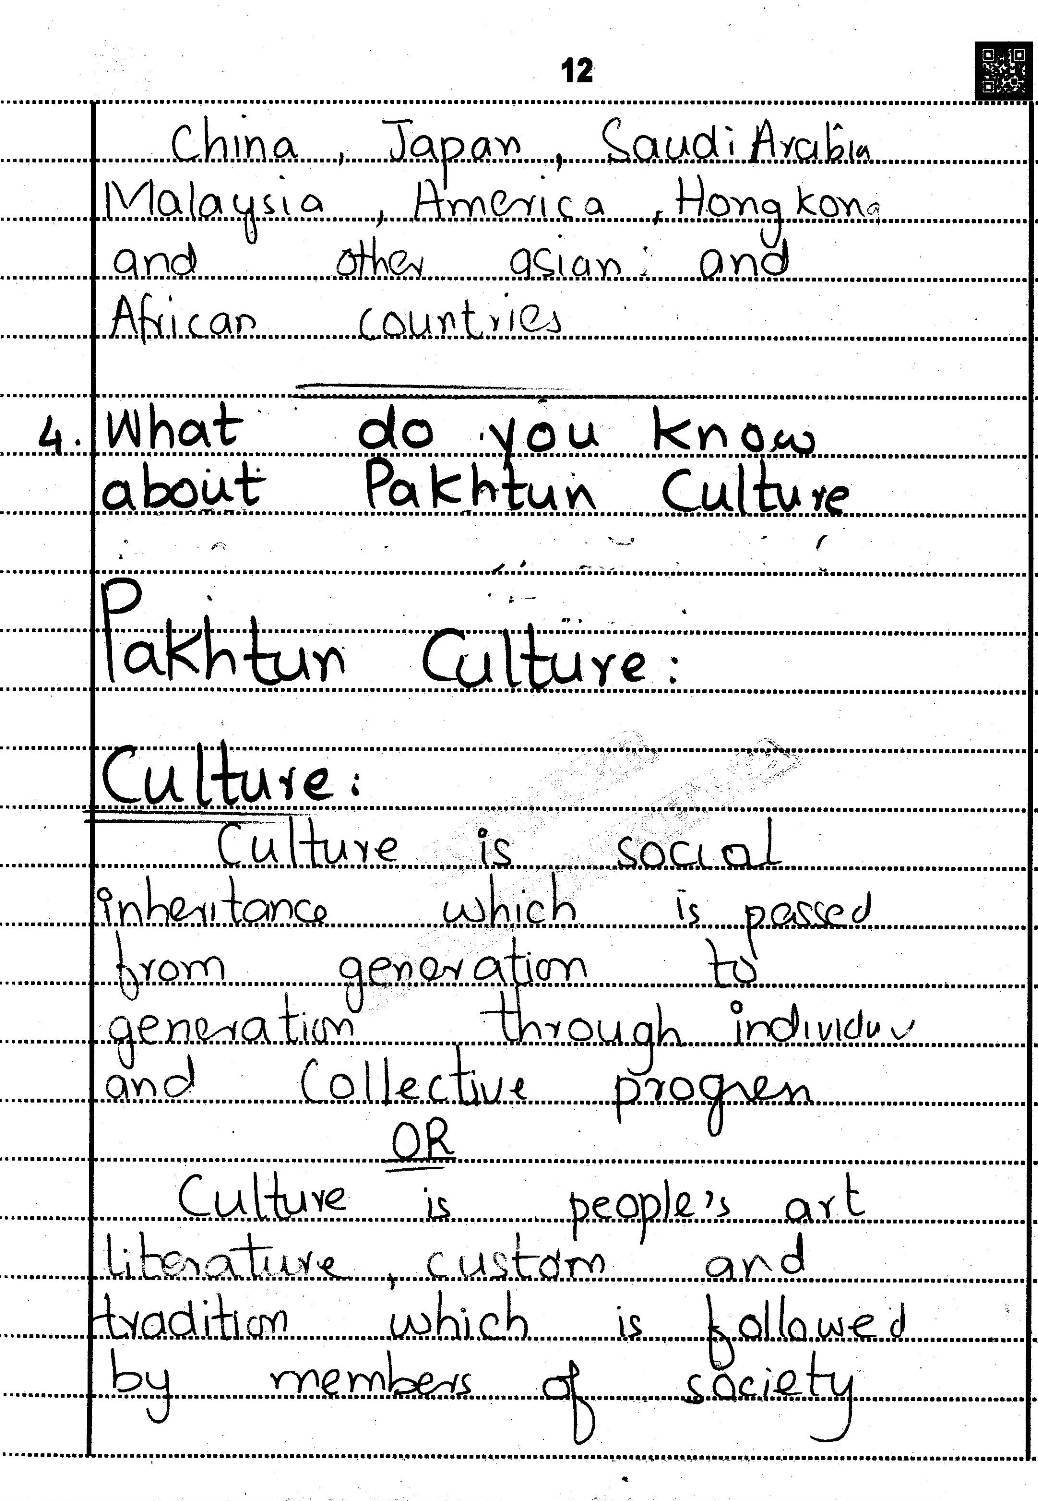 12
China, Japan, Saudi Arabia
Malaysia, America, Hong kong
and other asian and
African countries
4. What do you know
about Pakhtun Culture
Pakhtun Culture:
Culture:
Culture is social
inheritance which is passed
from generation to
generation through individu
and Collective progren
OR
Culture is people's art
literature, custom and
tradition which is followed
by members of society